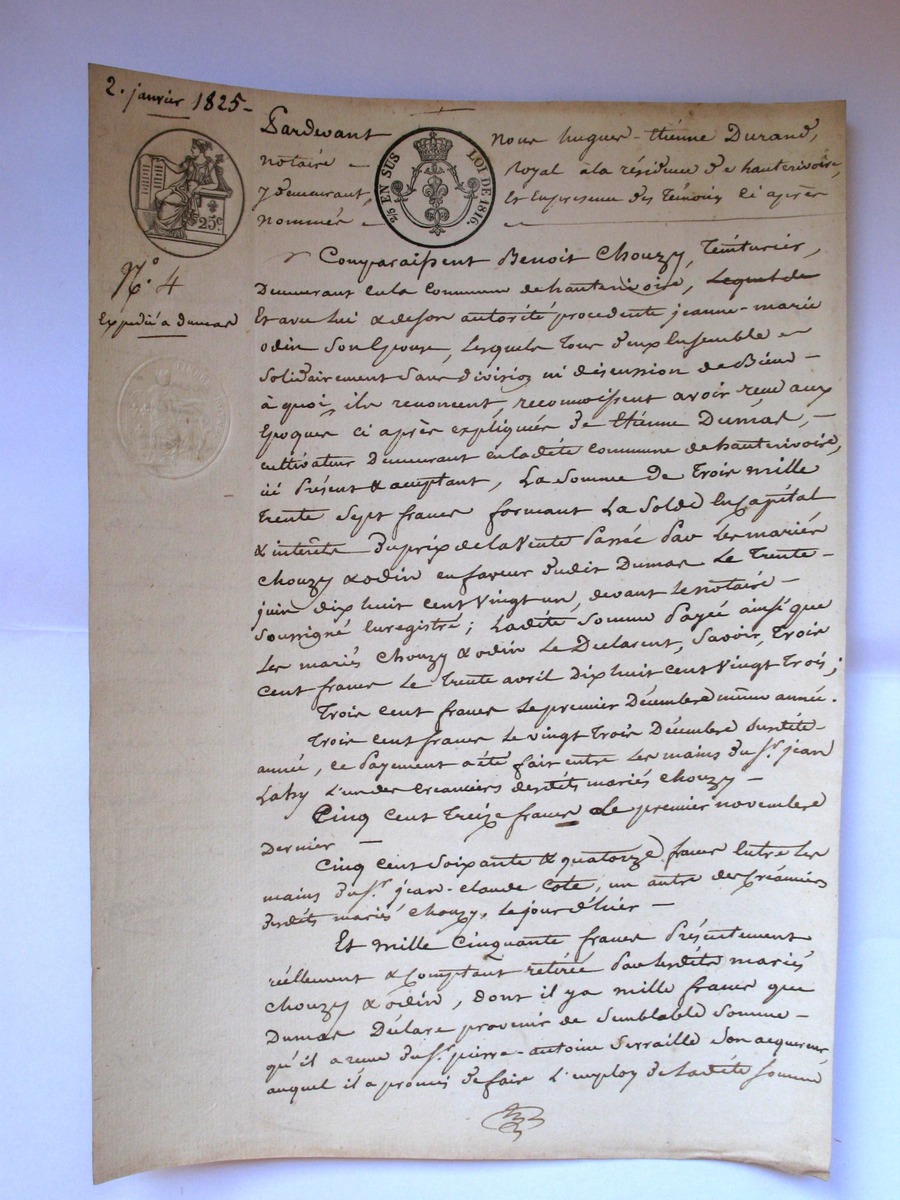 2. janvier 1825 -
Pardevant Nous hugues-étiénne Durand,
notaire Royal à la résidence de hauterivoire,
y demeurant, et En presence des Témoins ci après
nommés
25c
2/5 EN SUS LOI DE 1816.
N.° 4
Expédié a dumas
Comparaissent Benoit Chouzy, Teinturier,
Demeurant en la Commune de hauterivoire, Lequel de
Et avec Lui & de son autorité procedente jeanne-marie
odin Son Epouse, Lesquels Tous deux Ensemble
Solidairement Sans division ni discussion de Biens -
à quoi, ils renoncent, reconnoissent avoir reçu aux
Epoques ci après expliquées de étiénne Dumas, -
cultivateur Demeurant en ladite commune de hauterivoire,
ici Présent & acceptant, La Somme De Trois mille
Trente Sept francs formant La Solde En Capital
& intérêts du prix de la Vente Passée Par Les mariés
Chouzy & odin en faveur dudit Dumas Le Trente -
juin dix huit cent Vingt un, devant Le notaire -
Soussigné Enregistré; Ladite Somme Payée ainsi que
Les mariés Chouzy & odin Le Déclarent, Savoir, Trois
cent francs Le Trente avril Dix huit cent Vingt Trois;
Trois cent francs Le premier Décembre même année.
Trois cent francs Le vingt Trois Décembre Susdite
année, ce Payement a été fait entre Les mains du S.r jean
L'un des Creanciers desdits mariés Chouzy -
Cinq cent Treize francs Le premier novembre
Dernier -
Cinq cent Soixante & quatorze francs Entre Les
mains du S.r jean-Claude Cote, un autre des Créanciers
desdits mariés Chouzy, Le jour d'hier -
Et mille Cinquante francs Présentement
réellement & Comptant retirée Par Lesdits mariés
Chouzy & odin, dont il y a mille francs que
Dumas Déclare provenir de Semblable Somme -
qu'il a reçue du S.r pierre-antoine Serraille Son acquereur,
auquel il a promis de faire L'employ de Ladite Somme